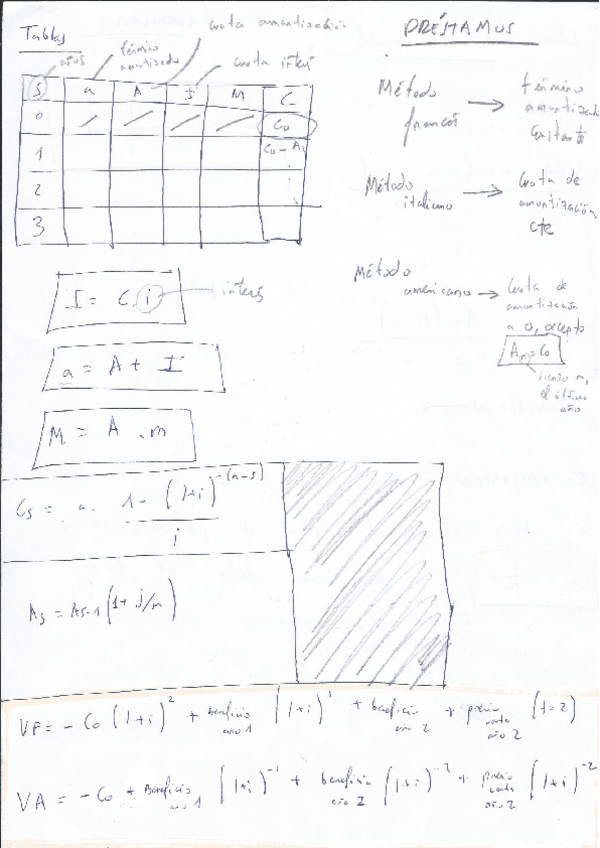 Tablas
años
término amortizado
cuota amortización
cuota interés
S a A I M C
0 C₀
1 C₀ - A₁
2
3
I = C . i
interés
a = A + I
M = A . m
PRÉSTAMOS
Método francés → término amortizado constante
Método italiano → Cuota de amortización cte
Método americano → Cuota de amortización a 0, excepto
Aₙ = C₀
siendo n, el último año
Cₛ = a . 1 - (1+i)^-(n-s) / i
Aₛ = Aₛ₋₁ (1 + j/m)
VF = - C₀ (1+i)² + Beneficio año 1 (1+i)¹ + beneficio año 2 + precio venta año 2 (t=2)
VA = - C₀ + Beneficio año 1 (1+i)⁻¹ + beneficio año 2 (1+i)⁻² + precio venta año 2 (1+i)⁻²